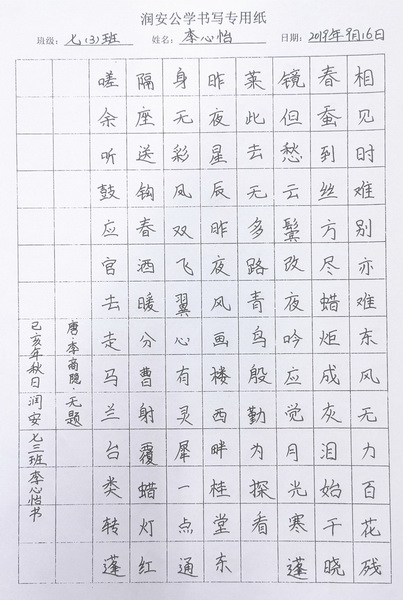 润安公学书写专用纸
班级: 七(3)班 姓名: 李心怡 日期: 2019年9月16日
相见时难别亦难东风无力百花残
春蚕到丝方尽蜡炬成灰泪始干晓
镜但愁云鬓改夜吟应觉月光寒蓬
莱此去无多路青鸟殷勤为探看
昨夜星辰昨夜风画楼西畔桂堂东
身无彩凤双飞翼心有灵犀一点通
隔座送钩春酒暖分曹射覆蜡灯红
嗟余听鼓应官去走马兰台类转蓬
唐·李商隐·无题
己亥年秋日润安七三班李心怡书